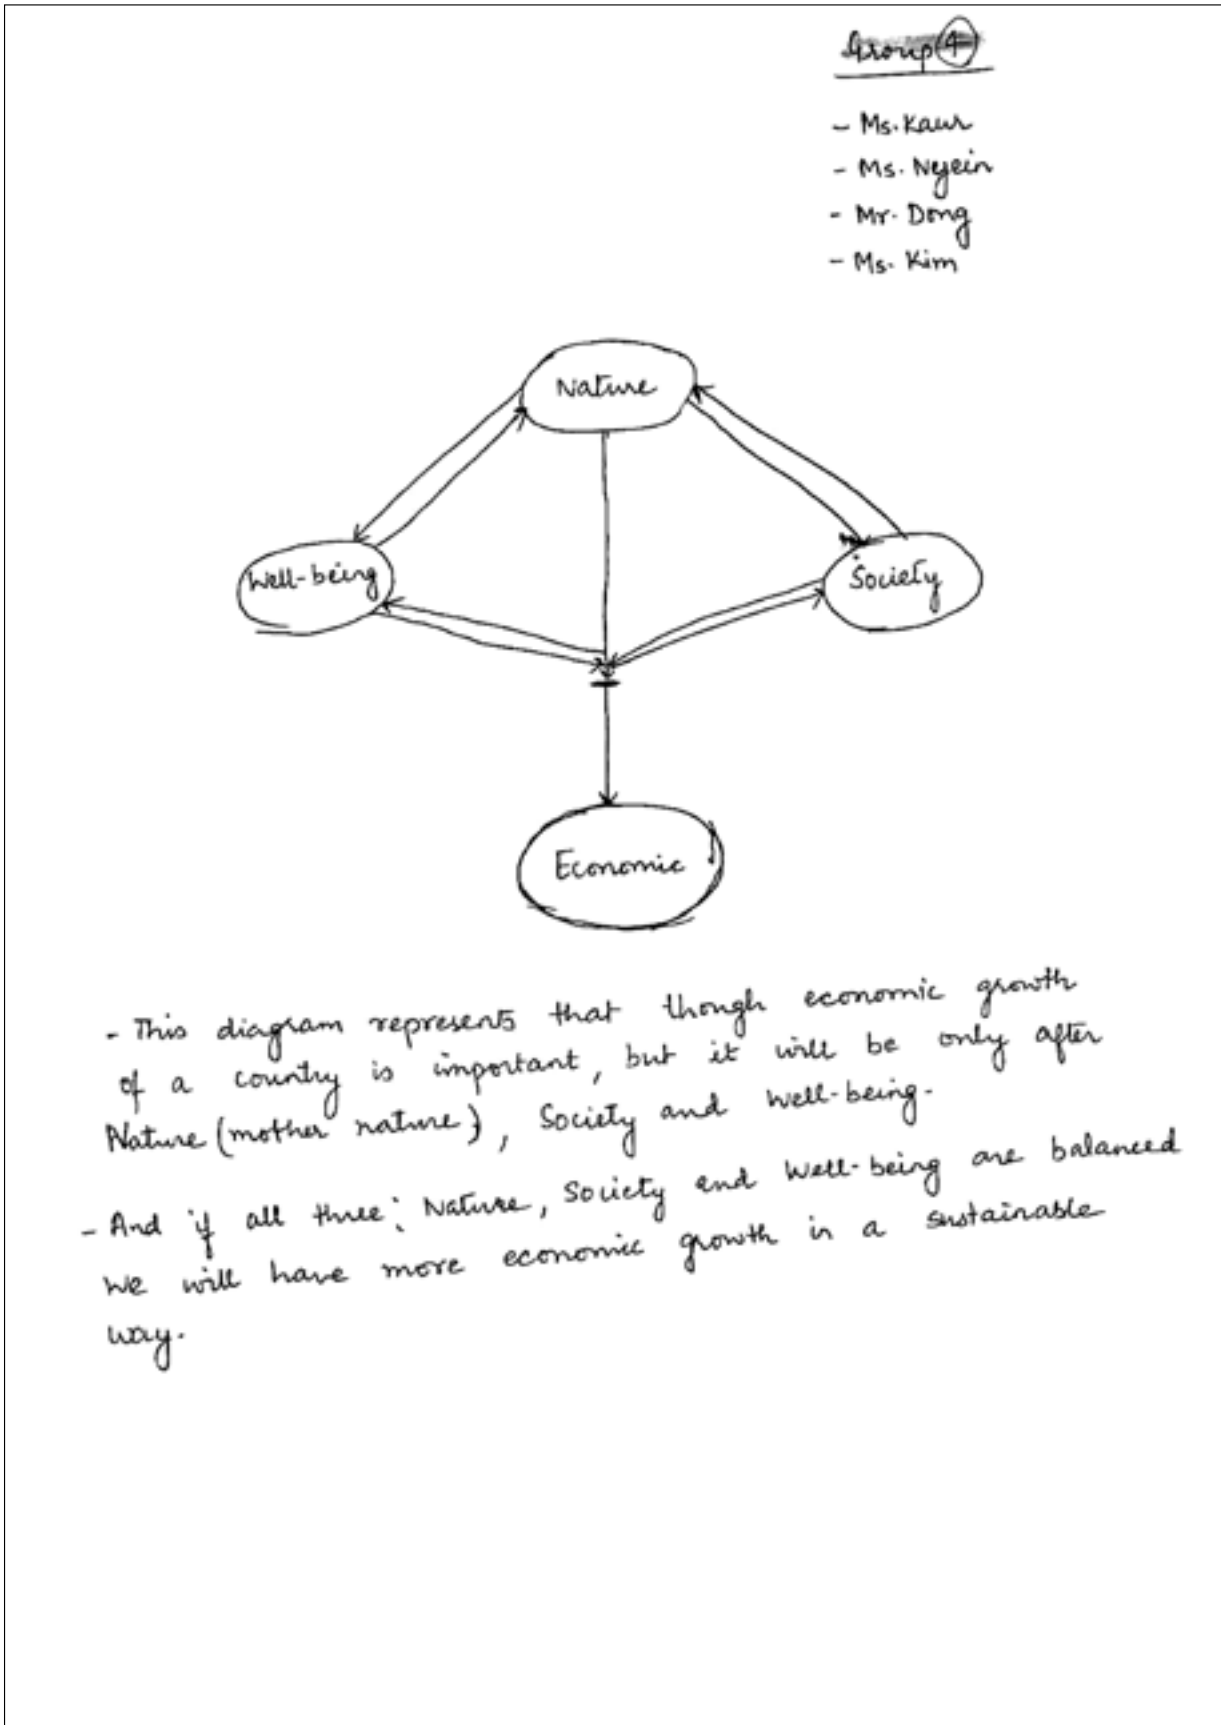 Group 4
- Ms. Kaur
- Ms. Nyein
- Mr. Dong
- Ms. Kim
Nature
Well-being
Society
Economic
- This diagram represents that though economic growth
of a country is important, but it will be only after
Nature (mother nature), Society and Well-being.
- And if all three: Nature, Society and Well-being are balanced
we will have more economic growth in a sustainable
way.